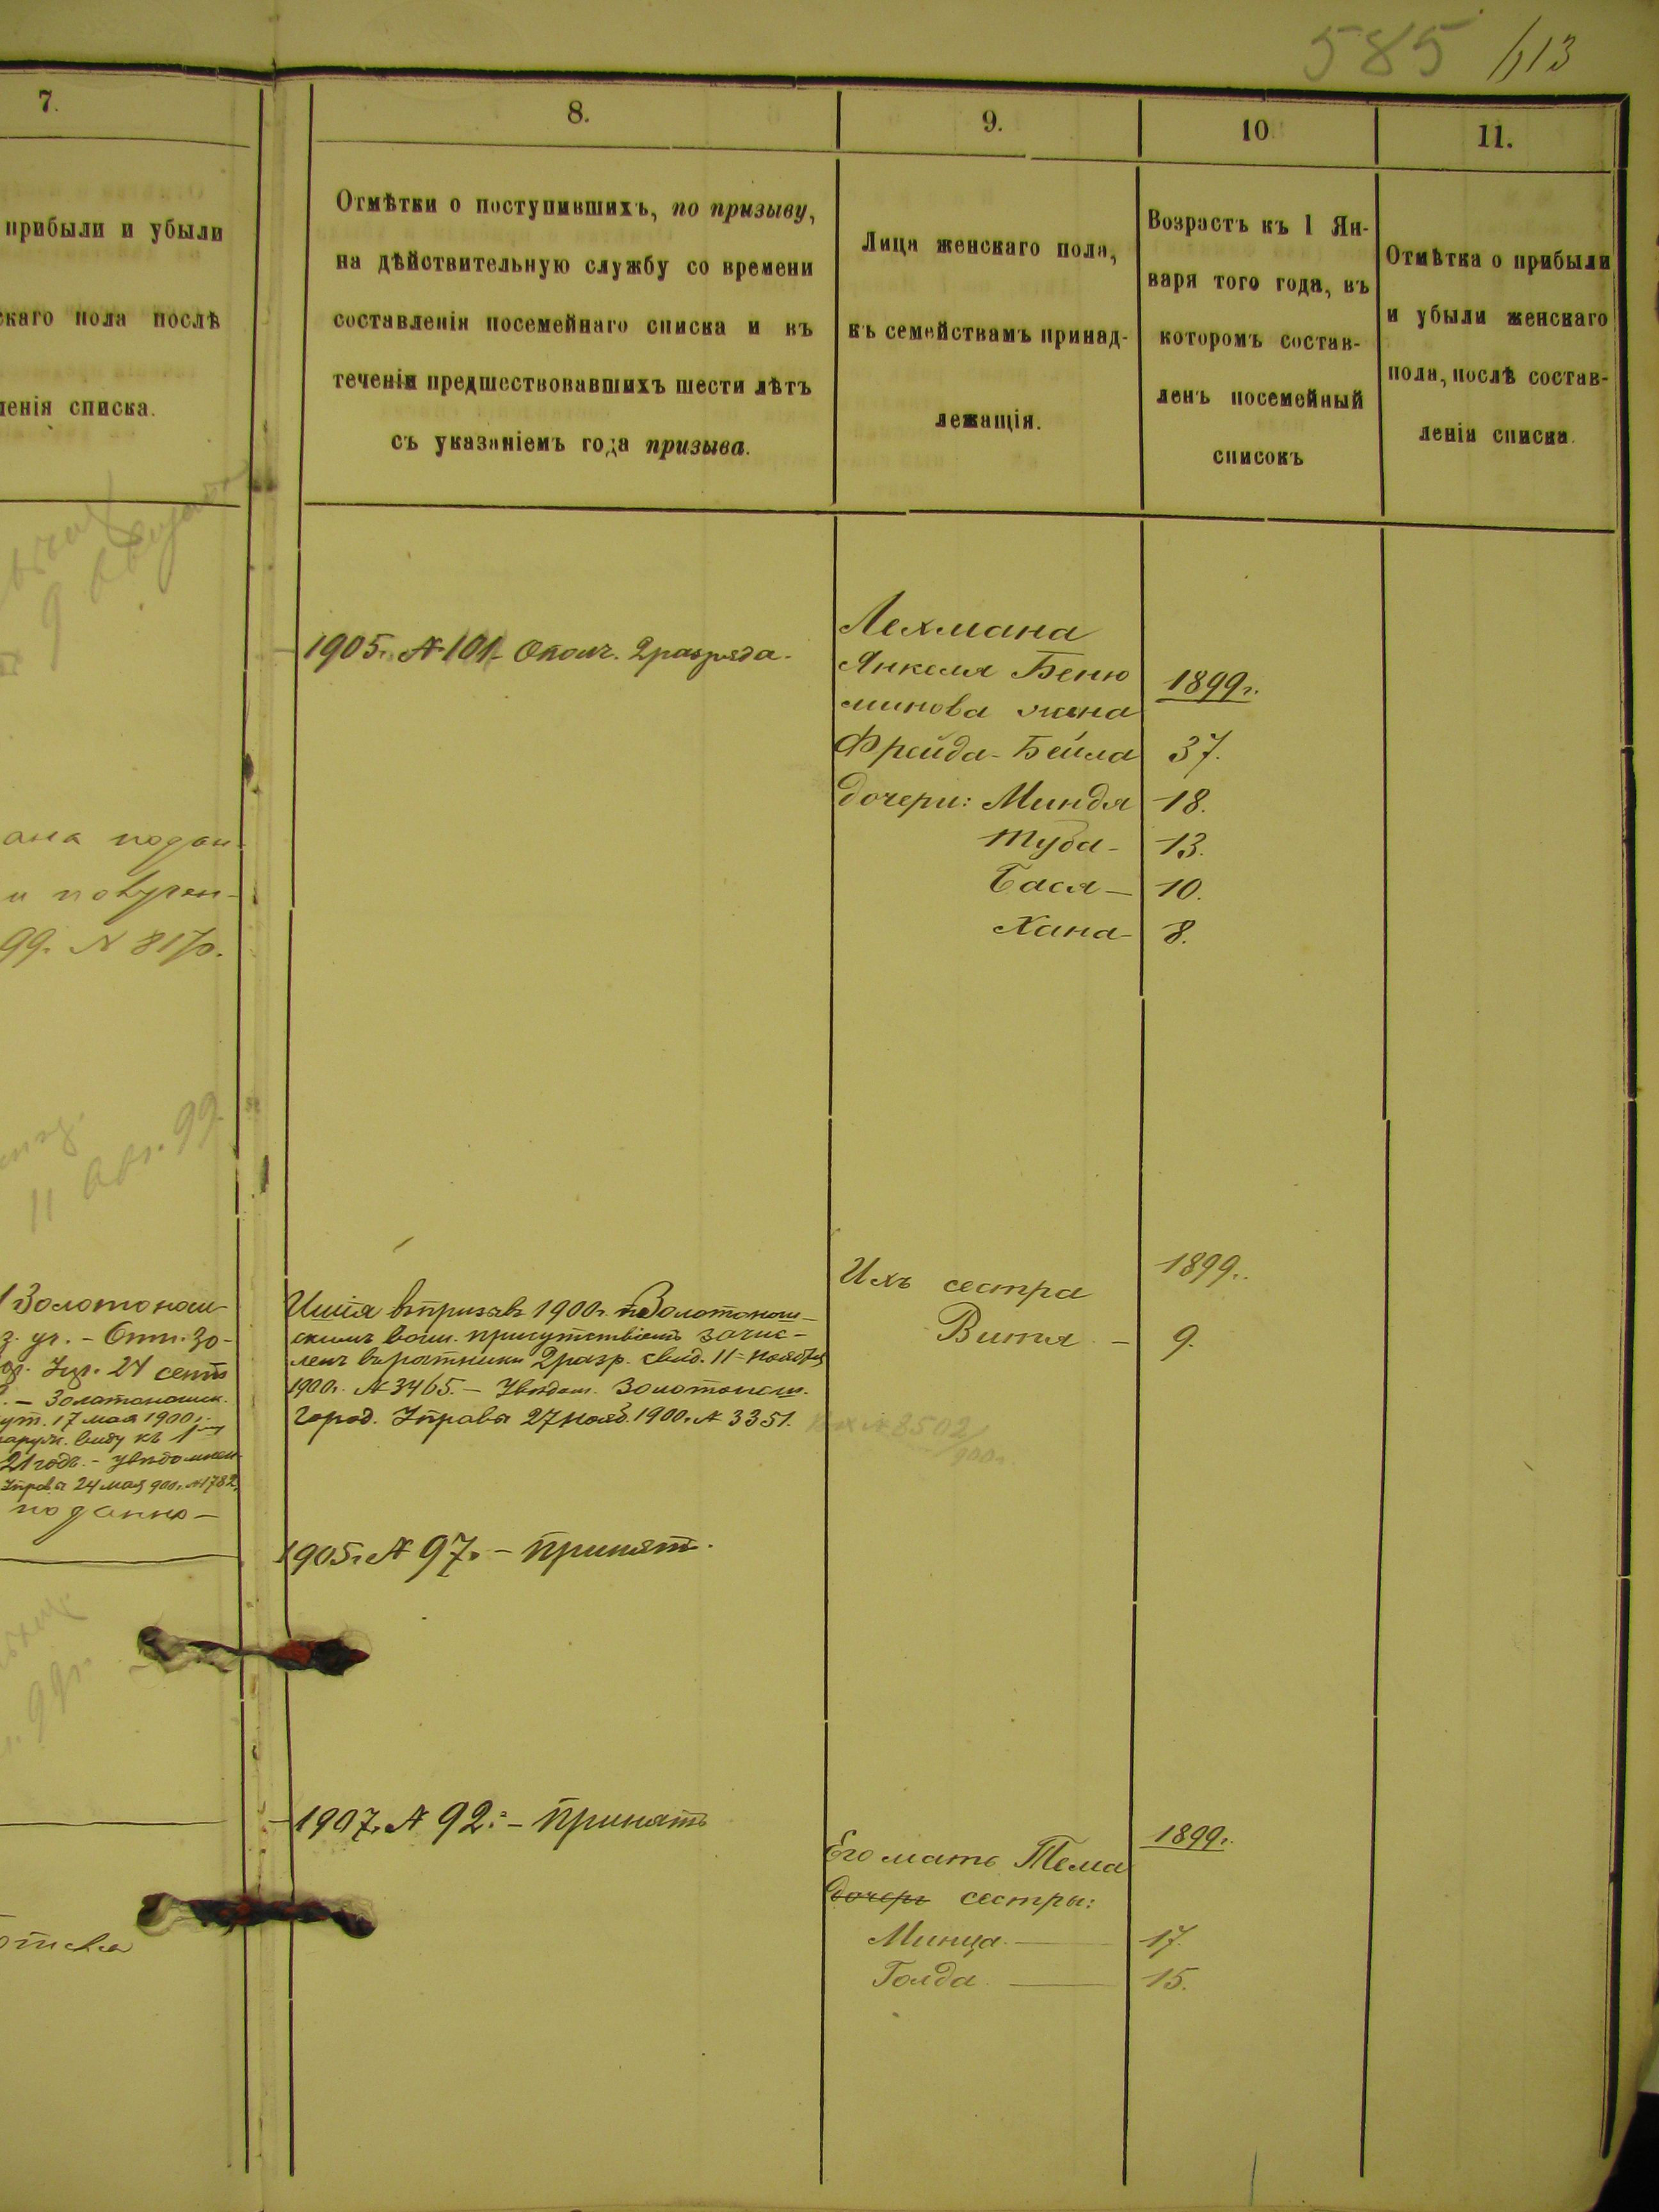 585 613
7.
8.
9.
10
11.
прибыли и убыли
скаго пола послѣ
ленія списка.
Отмѣтки о поступившихъ, по призыву,
на дѣйствительную службу со времени
составленія посемейнаго списка и въ
теченіи предшествовавшихъ шести лѣтъ
съ указаніемъ года призыва.
Лица женскаго пола,
къ семействамъ принад-
лежащія.
Возрастъ къ 1 Ян-
варя того года, въ
которомъ состав-
ленъ посемейный
списокъ
Отмѣтка о прибыли
и убыли женскаго
пола, послѣ состав-
ленія списка.
99. № 8170.
11 99
Золотонош-
24 сент
17 мая 1900 г.
виду къ 1
21 годъ. – увѣдомлен
24 мая 900 г. № 1782.
1905 г. № 101 – Ополч. 2 разряда.
Ицкія въ призывъ 1900 г. по Золотонош-
скимъ воин. присутствіемъ зачис-
ленъ въ ратники 2 разр. свид. 11 ноября
1900 г. № 3465. – Увѣдом. Золотонош.
Город. Управы 27 нояб. 1900 г. № 3351.
№ 8502
900 г.
1905 г. № 97. – принятъ.
1907 г. № 92. – принятъ
Лехмана
Янкеля Беню
минова жена
Фрейда-Бейла 37.
дочери: Миндя 18.
Туба – 13.
Бася – 10.
Хана – 8.
1899 г.
Ихъ сестра
1899 г.
Витя – 9.
1899 г.
Его мать Тема
дочери сестры:
Минца – 17.
Голда – 15.